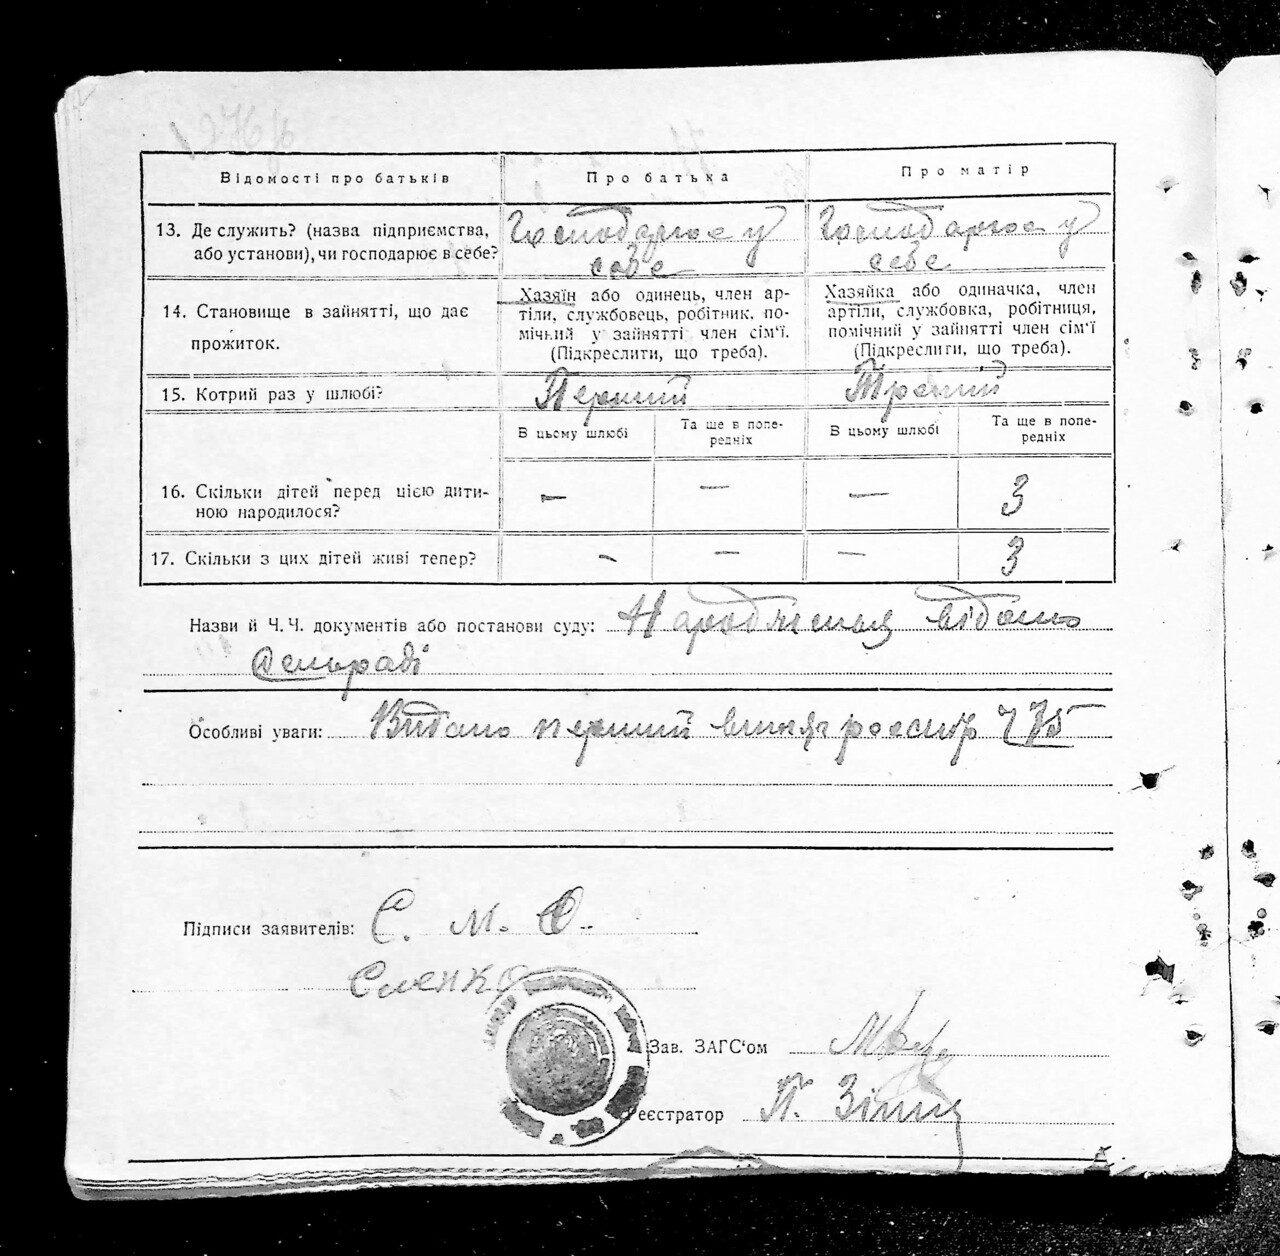 Відомості про батьків
Про батька
Про матір
13. Де служить? (назва підприємства,
або установи), чи господарює в себе?
Господарює у
себе
Господарює у
себе
14. Становище в зайнятті, що дає
прожиток.
Хазяїн або одинець, член ар-
тіли, службовець, робітник, по-
мічний у зайнятті член сім'ї.
(Підкреслити, що треба).
Хазяйка або одиначка, член
артіли, службовка, робітниця,
помічний у зайнятті член сім'ї
(Підкреслити, що треба).
15. Котрий раз у шлюбі?
Перший
Третий
В цьому шлюбі
Та ще в попе-
редніх
В цьому шлюбі
Та ще в попе-
редніх
16. Скільки дітей перед цією дити-
ною народилося?
— — — 3
17. Скільки з цих дітей живі тепер?
- — — 3
Назви й Ч.Ч. документів або постанови суду: Народження відомо
сельраді
Особливі уваги: Видано перший реєстр 775
Підписи заявителів: Є. М. О.
Єленко
Зав. ЗАГС'ом
Реєстратор П.